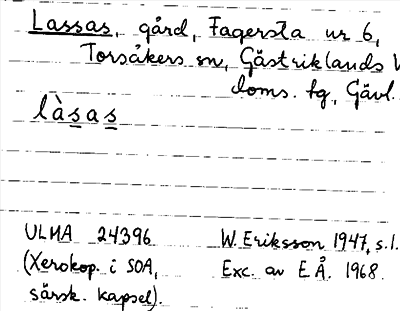 Lassas, gård, Fagersta nr 6,
Torsåkers sn, Gästriklands V
doms. fg, Gävl.
làsas
ULMA 24396 W. Eriksson 1947, s.1.
(Xerokop. i SOA, Exc. av E Å. 1968
särsk. kapsel).